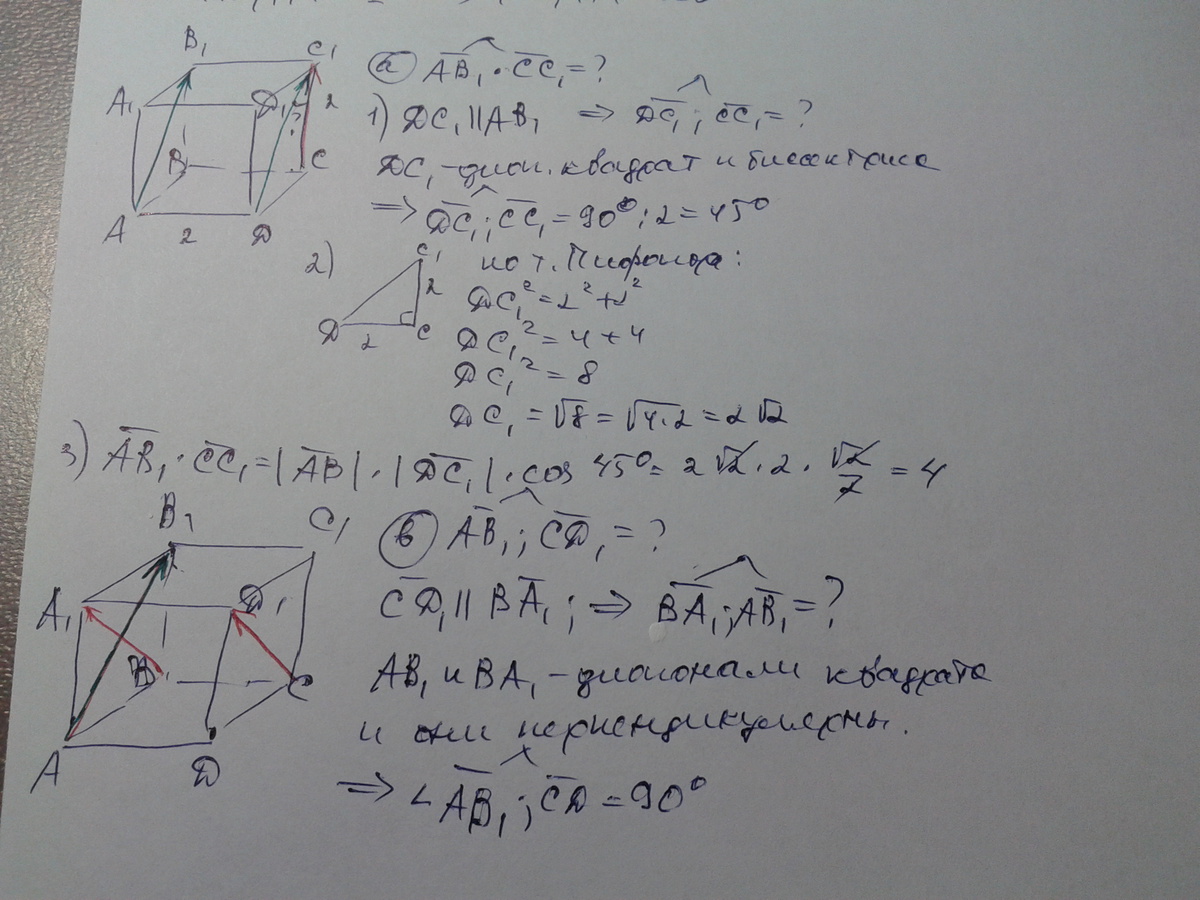 B₁ C₁
A₁ D₁ ? 2
B C
A 2 D
а) AB₁ · CC₁ = ?
1) DC₁ || AB₁ ⇒ DC₁; CC₁ = ?
DC₁ - диаг. квадрат и биссектриса
⇒ DC₁; CC₁ = 90° : 2 = 45°
2) C₁
2
D 2 C
по т. Пифагора:
DC₁² = 2² + 2²
DC₁² = 4 + 4
DC₁² = 8
DC₁ = √8 = √4·2 = 2√2
3) AB₁ · CC₁ = |AB| · |DC₁| · cos 45° = 2√2 · 2 · √2/2 = 4
B₁ C₁
A₁ D₁
B C
A D
в) AB₁; CD₁ = ?
CD₁ || BA₁; ⇒ BA₁; AB₁ = ?
AB₁ и BA₁ - диагонали квадрата
и они перпендикулярны.
⇒ ∠ AB₁; CD = 90°